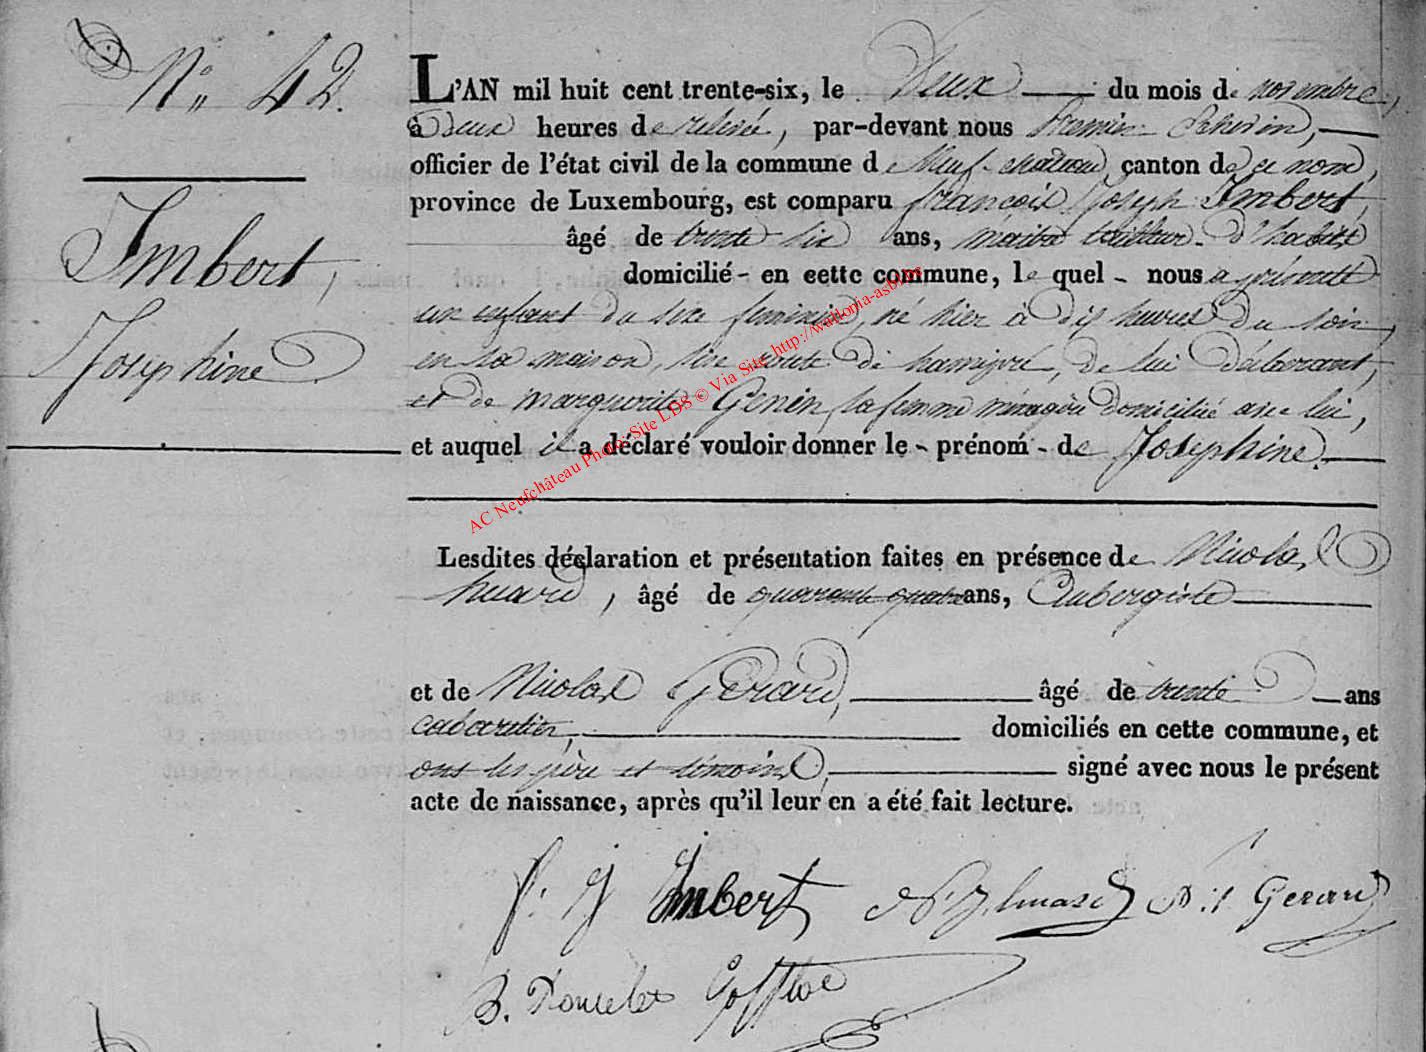 N° 42.
Imbert,
Josephine
L'AN mil huit cent trente-six, le Deux du mois de novembre,
à deux heures de relevée, par-devant nous Premier Echevin,
officier de l'état civil de la commune de Neufchateau, canton de ce nom,
province de Luxembourg, est comparu françois Joseph Imbert,
âgé de trente six ans, maitre tailleur d'habits
domicilié - en cette commune, le quel - nous a présenté
un enfant du sexe feminin, né hier à dix heures du soir,
en sa maison, sise route de hamipré, de lui déclarant,
et de marguerite Genin, sa femme ménagère domiciliée avec lui,
et auquel il a déclaré vouloir donner le - prénom - de Josephine.
AC Neufchâteau Photo: Site LDS © Via Site http://wallonia-asbl.be
Lesdites déclaration et présentation faites en présence de Nicolas
huard, âgé de quarante quatre ans, Aubergiste
et de Nicolas Gerard, âgé de trente ans
cabaretier, domiciliés en cette commune, et
ont les père et témoins, signé avec nous le présent
acte de naissance, après qu'il leur en a été fait lecture.
f. J Imbert N. J. huard N.s Gerard
B. Poncelet Goffloe